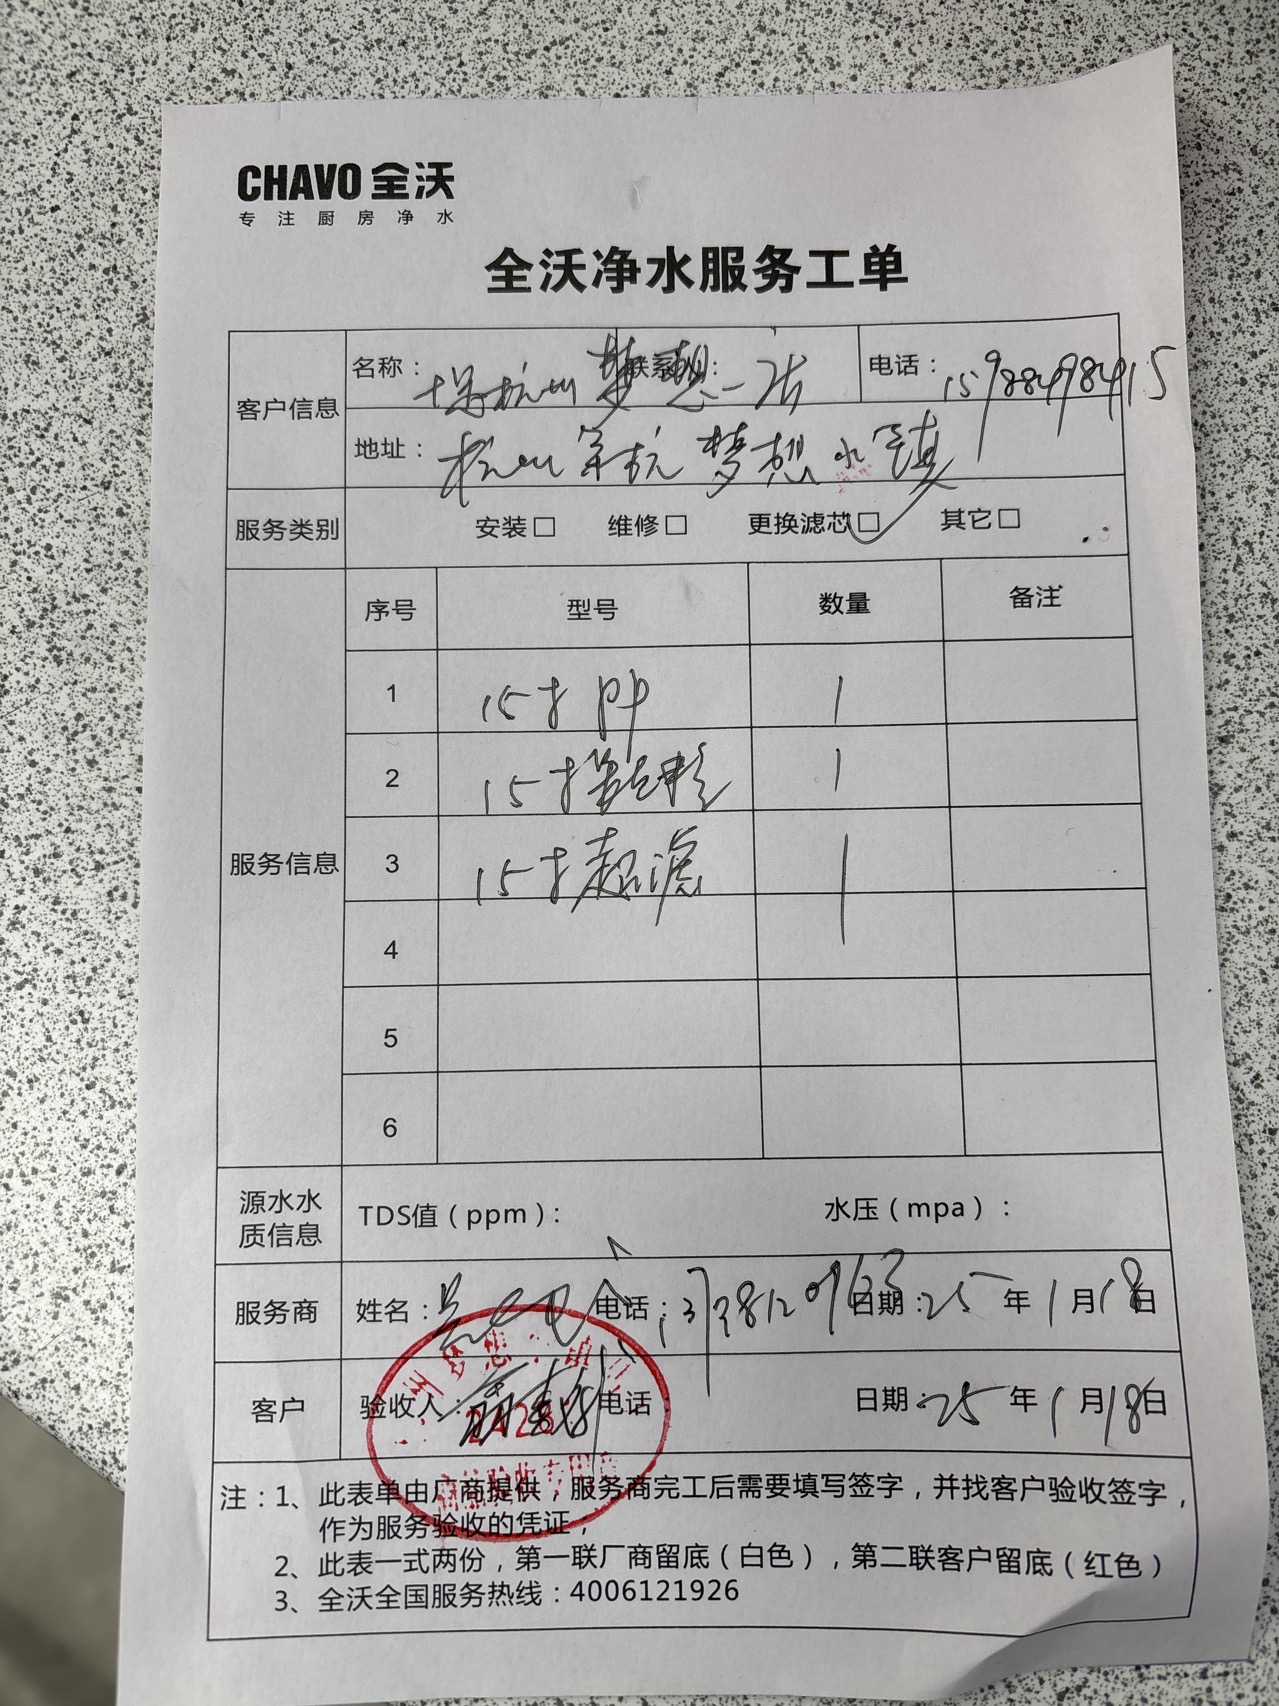 CHAVO 全沃
专注厨房净水
全沃净水服务工单
客户信息
名称： 杭州梦想一店
联系人：
电话：15988498415
地址：杭州余杭梦想水镇
服务类别 安装□ 维修□ 更换滤芯□ 其它□
服务信息
序号 型号 数量 备注
1 15寸PP 1
2 15寸 1
3 15寸超滤 1
4
5
6
源水水质信息 TDS值（ppm）： 水压（mpa）：
服务商 姓名： 电话： 日期：25年1月18日
客户 验收人： 电话 日期：25年1月18日
注：1、此表单由厂商提供，服务商完工后需要填写签字，并找客户验收签字，
作为服务验收的凭证，
2、此表一式两份，第一联厂商留底（白色），第二联客户留底（红色）
3、全沃全国服务热线：4006121926